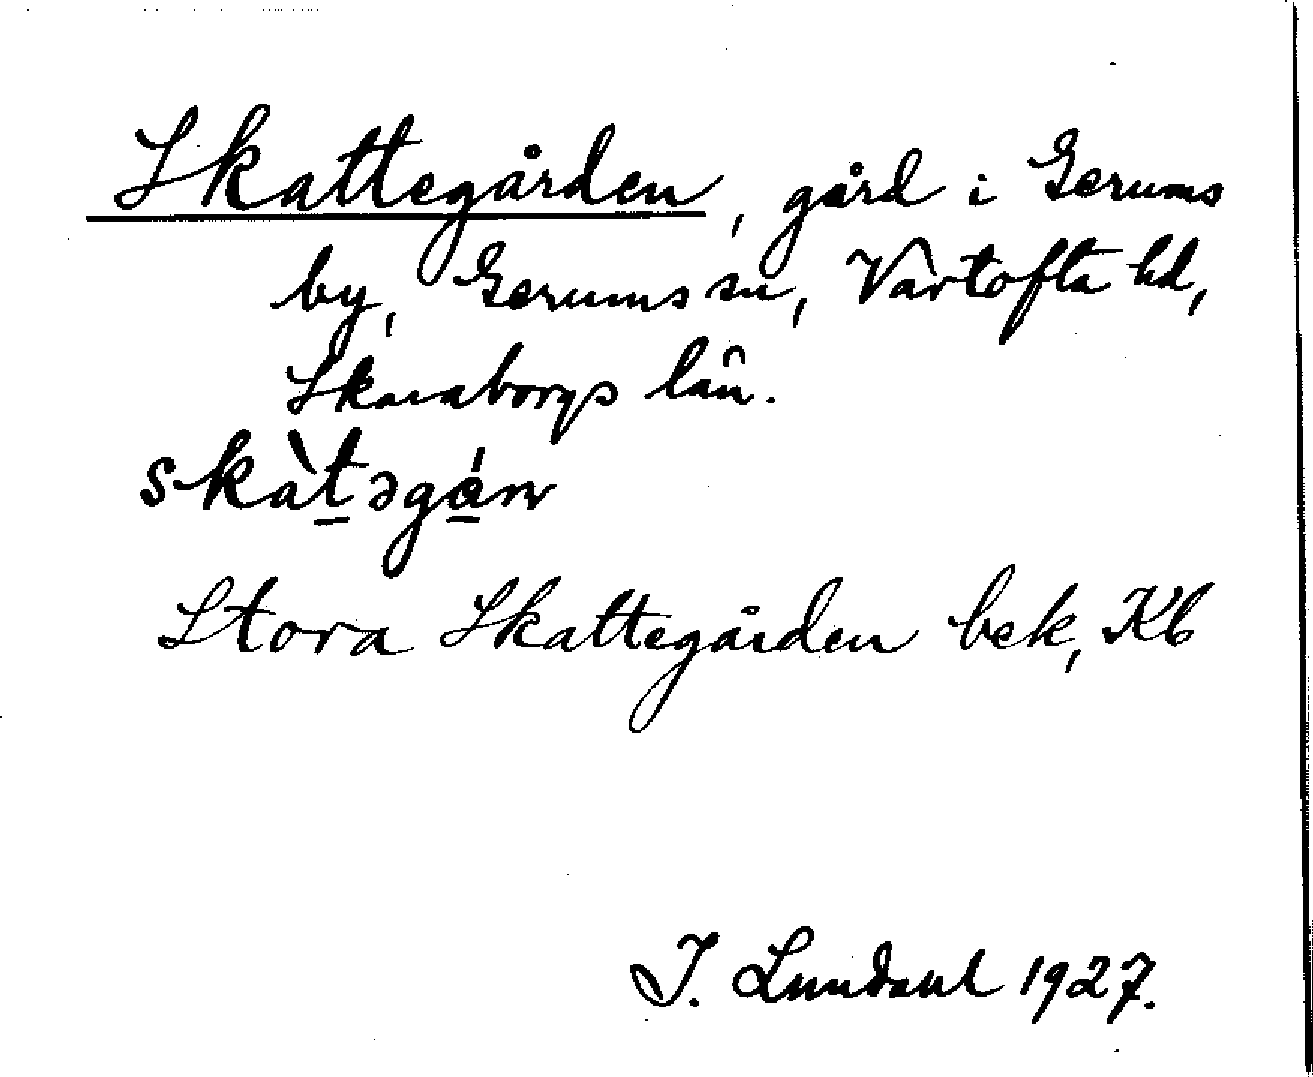 Skattegården, gård i Gerums
by, Gerums sn, Vartofta hd,
Skaraborgs län.
skàt̲əgá̲n
Stora Skattegården bek, Kb
I. Lundahl 1927.